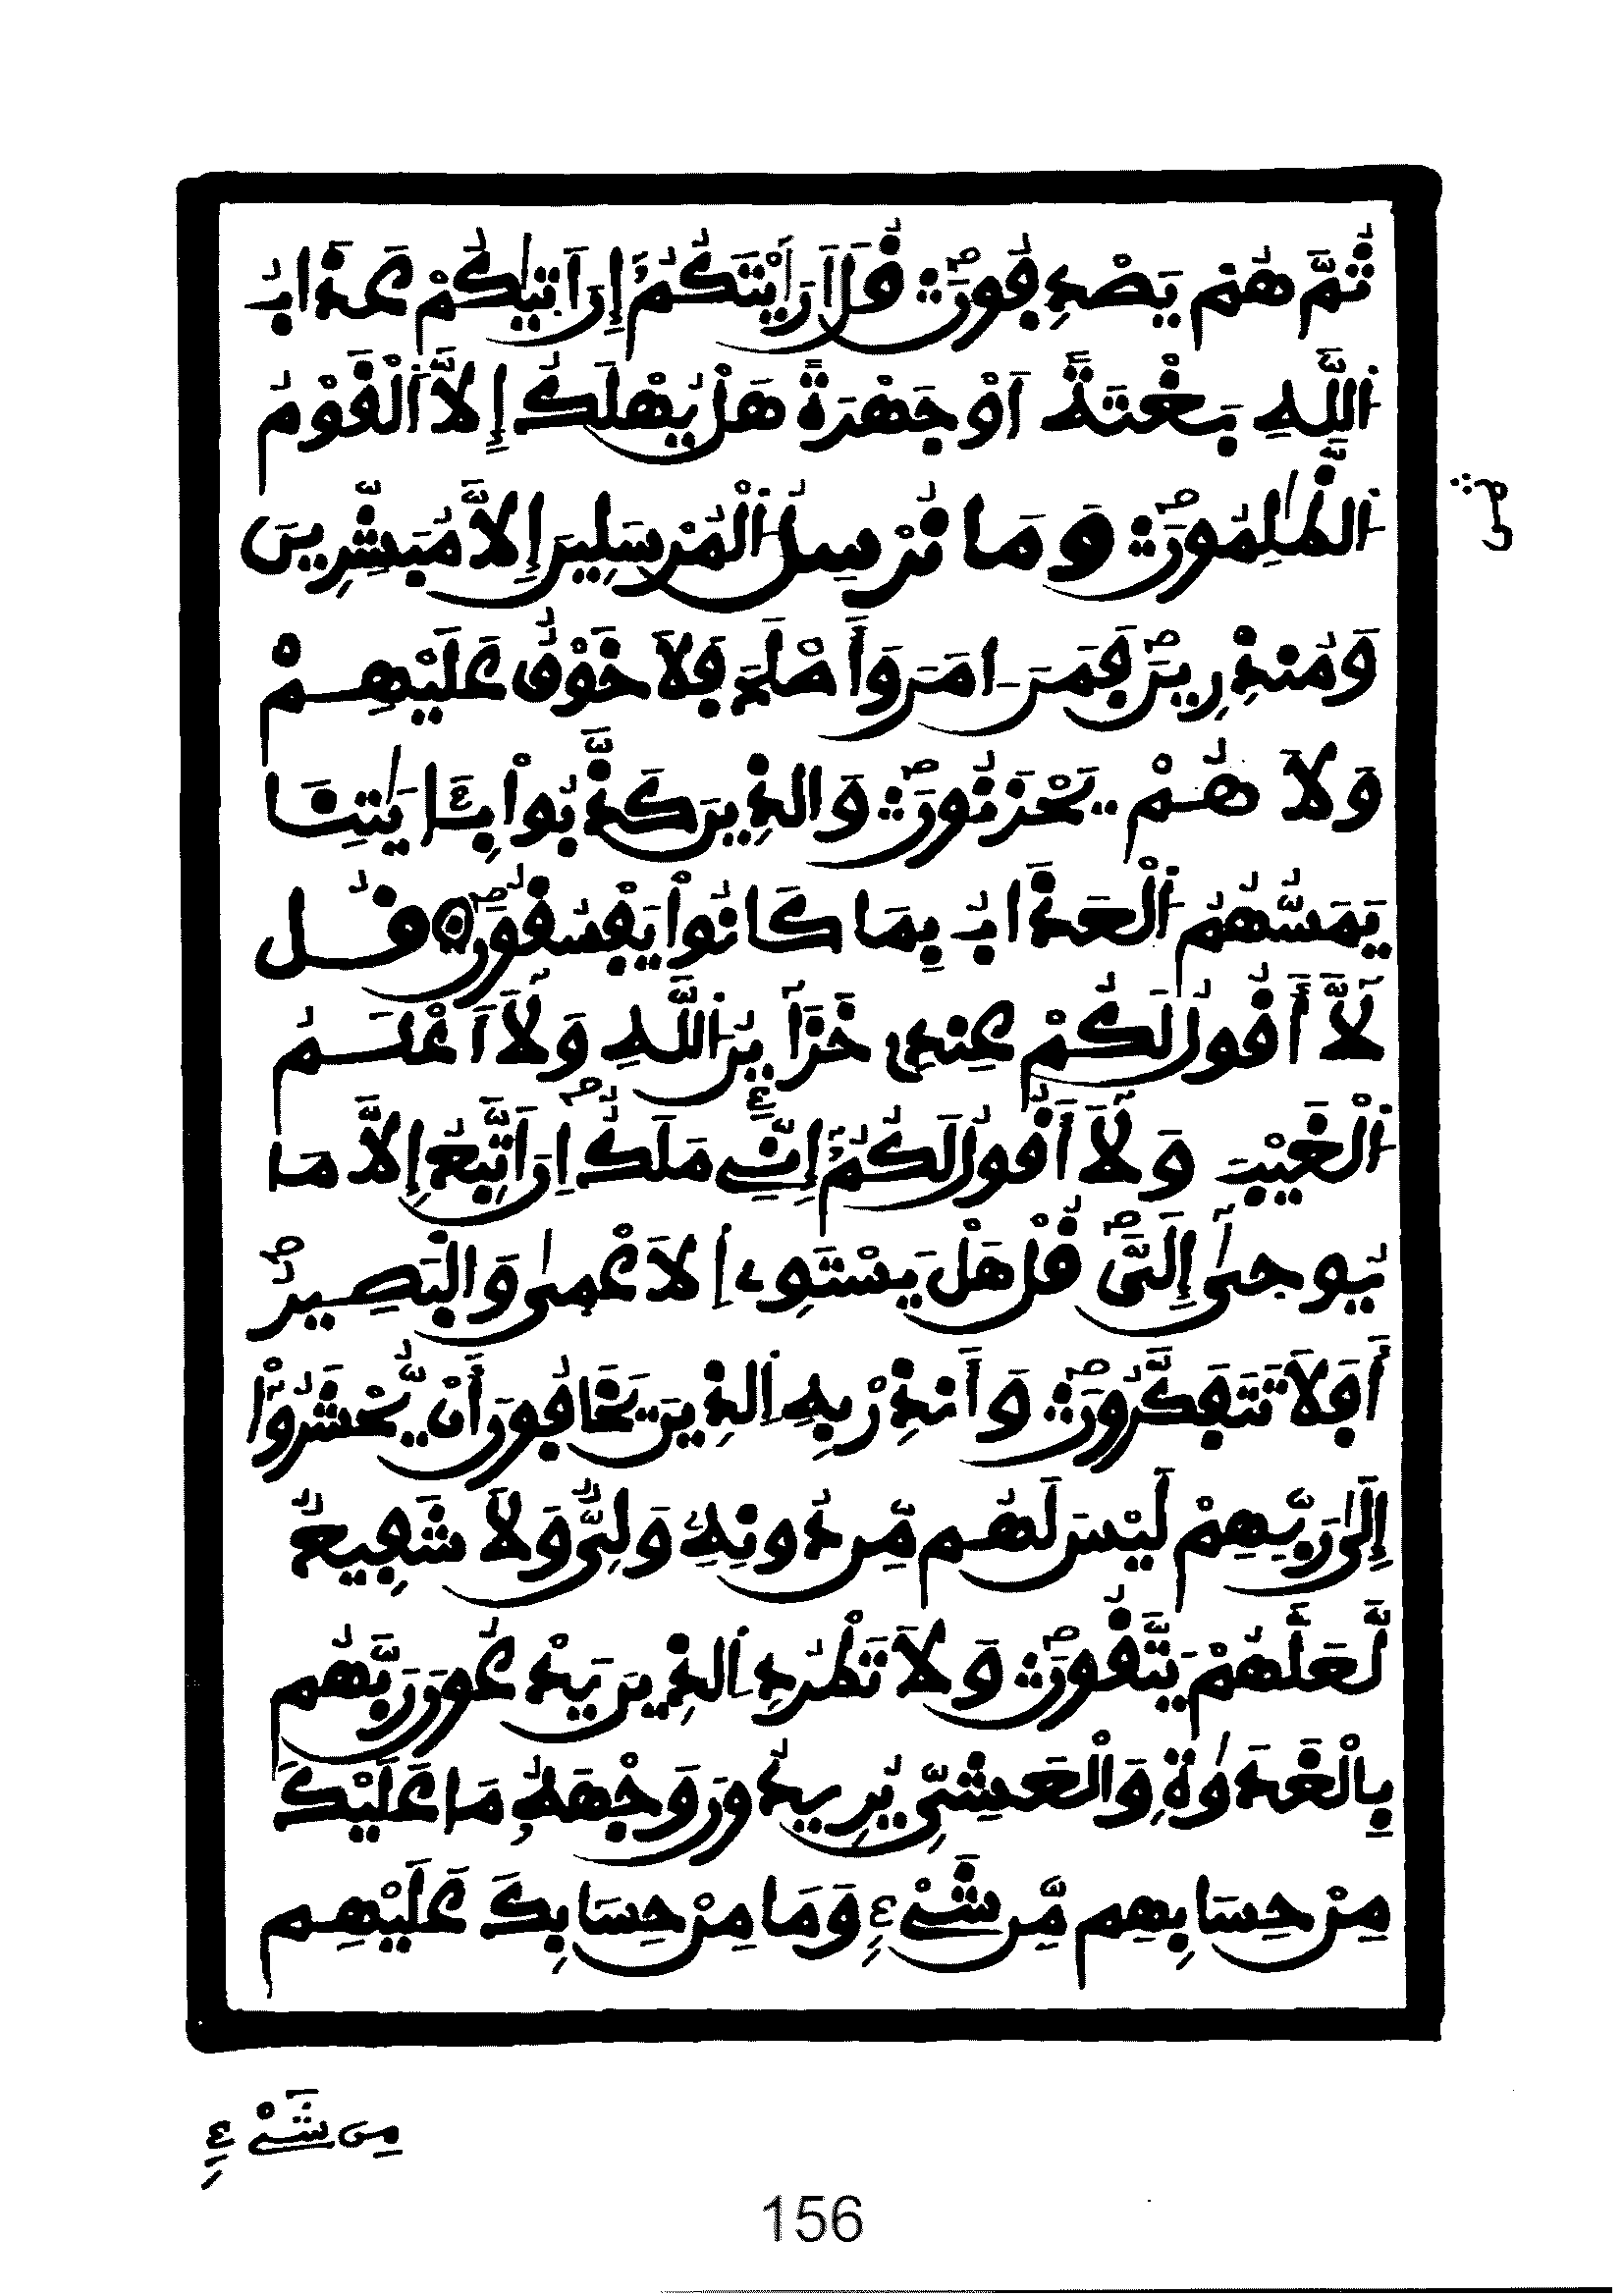 ثُمَّ هُمْ يَصْدِفُونَ قُلَ اَرَٰيْتَكُمُۥٓ إِنَ اَتٜيٰكُمْ عَذَابُ
اُ۬للَّهِ بَغْتَةً اَوْ جَهْرَةً هَلْ يُهْلَكُ إِلَّا اَ۬لْقَوْمُ
اُ۬لظَّٰلِمُونَ وَمَا نُرْسِلُ اُ۬لْمُرْسَلِينَ إِلَّا مُبَشِّرِينَ
وَمُنذِرِينَ فَمَنَ اٰمَنَ وَأَصْلَحَ فَلَا خَوْفٌ عَلَيْهِمْ
وَلَا هُمْ يَحْزَنُونَ وَالذِينَ كَذَّبُواْ بِـَٔايَٰتِنَا
يَمَسُّهُمُ اُ۬لْعَذَابُ بِمَا كَانُواْ يَفْسُقُونَ قُل
لَّآ أَقُولُ لَكُمْ عِندِے خَزَآئِنُ اُ۬للَّهِ وَلَآ أَعْلَمُ
اُ۬لْغَيْبَ وَلَآ أَقُولُ لَكُمُۥٓ إِنِّے مَلَكٌ اِنَ اَتَّبِعُ إِلَّا مَا
يُوحىٰٓ إِلَيَّ قُلْ هَلْ يَسْتَوِے اِ۬لَاعْمىٰ وَالْبَصِيرُ
أَفَلَا تَتَفَكَّرُونَ وَأَنذِرْ بِهِ اِ۬لذِينَ يَخَافُونَ أَنْ يُّحْشَرُوٓاْ
إِلَىٰ رَبِّهِمْ لَيْسَ لَهُم مِّن دُونِهِۦ وَلِيٌّ وَلَا شَفِيعٌ
لَّعَلَّهُمْ يَتَّقُونَ وَلَا تَطْرُدِ اِ۬لذِينَ يَدْعُونَ رَبَّهُم
بِالْغَدَوٰةِ وَالْعَشِيِّ يُرِيدُونَ وَجْهَهُۥ مَا عَلَيْكَ
مِنْ حِسَابِهِم مِّن شَےْءٍ وَمَا مِنْ حِسَابِكَ عَلَيْهِم
مِن شَےْءٍ
156